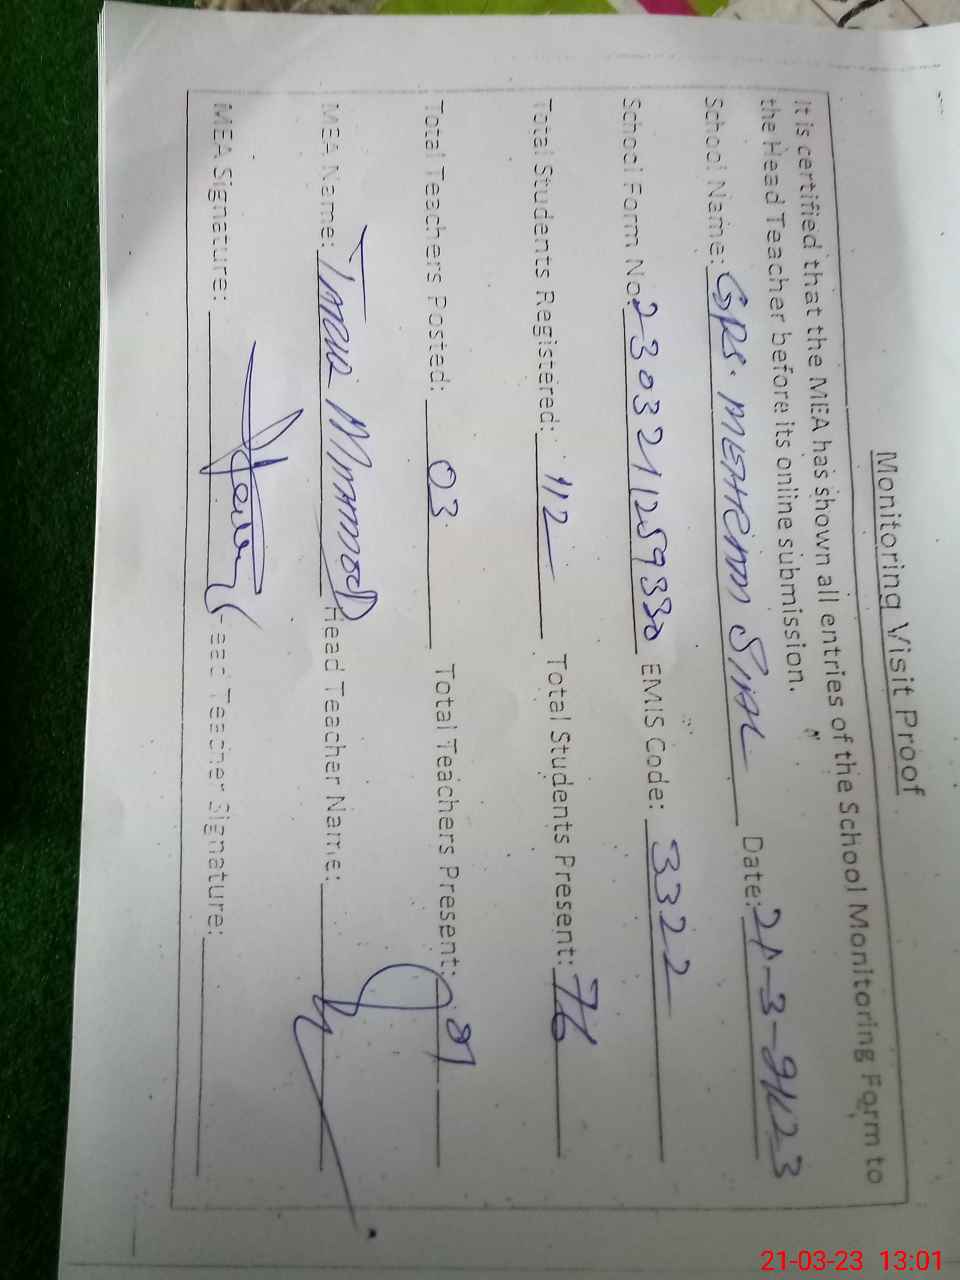 Monitoring Visit Proof
It is certified that the MEA has shown all entries of the School Monitoring Form to
the Head Teacher before its online submission.
School Name: GPS. MEHEDIM SIAL Date: 21-3-2023
School Form No: 230321125933 EMIS Code: 3322
Total Students Registered: 112 Total Students Present: 76
Total Teachers Posted: 03 Total Teachers Present:
MEA Name: Head Teacher Name:
MEA Signature: Head Teacher Signature:
21-03-23 13:01